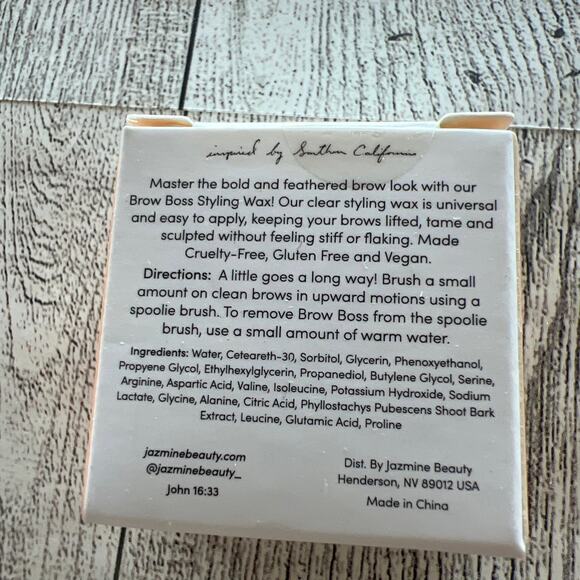 inspired by Southern California
Master the bold and feathered brow look with our
Brow Boss Styling Wax! Our clear styling wax is universal
and easy to apply, keeping your brows lifted, tame and
sculpted without feeling stiff or flaking. Made
Cruelty-Free, Gluten Free and Vegan.
Directions: A little goes a long way! Brush a small
amount on clean brows in upward motions using a
spoolie brush. To remove Brow Boss from the spoolie
brush, use a small amount of warm water.
Ingredients: Water, Ceteareth-30, Sorbitol, Glycerin, Phenoxyethanol,
Propyene Glycol, Ethylhexylglycerin, Propanediol, Butylene Glycol, Serine,
Arginine, Aspartic Acid, Valine, Isoleucine, Potassium Hydroxide, Sodium
Lactate, Glycine, Alanine, Citric Acid, Phyllostachys Pubescens Shoot Bark
Extract, Leucine, Glutamic Acid, Proline
jazminebeauty.com
@jazminebeauty_
John 16:33
Dist. By Jazmine Beauty
Henderson, NV 89012 USA
Made in China